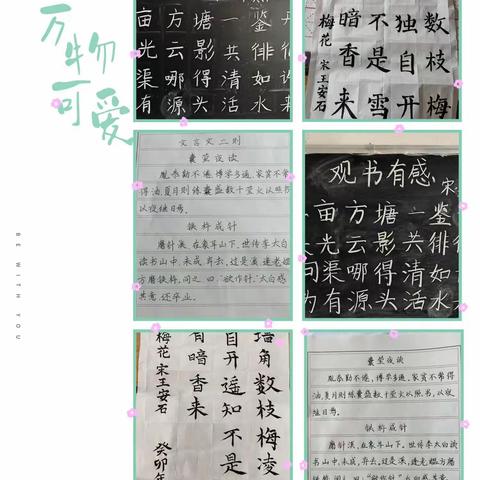 万物
可爱
BE WITH YOU
亩方塘一鉴开
光云影共徘
渠哪得清如许
有源头活水来
数枝梅
独自开
不是雪
暗香来
梅花 宋 王安石
文言文二则
囊萤夜读
胤恭勤不倦,博学多通。家贫不常
得油,夏月则练囊盛数十萤火以照书,
以夜继日焉。
铁杵成针
磨针溪,在象耳山下。世传李太白
读书山中,未成,弃去。过是溪,逢老媪
方磨铁杵,问之,曰:“欲作针。”太白感
其意,还卒业。
观书有感 宋
亩方塘一鉴
光云影共徘
问渠哪得清如
为有源头活水
墙角数枝梅凌
自开遥知不是
有暗香来
梅花 宋 王安石 癸卯年
囊萤夜读
胤恭勤不倦,博学多通。家贫不常得
油,夏月则练囊盛数十萤火以照书,以夜
继日焉。
铁杵成针
磨针溪,在象耳山下。世传李太白读
书山中,未成,弃去。过是溪,逢老媪方磨
铁杵,问之,曰:“欲作针。”太白感其意,